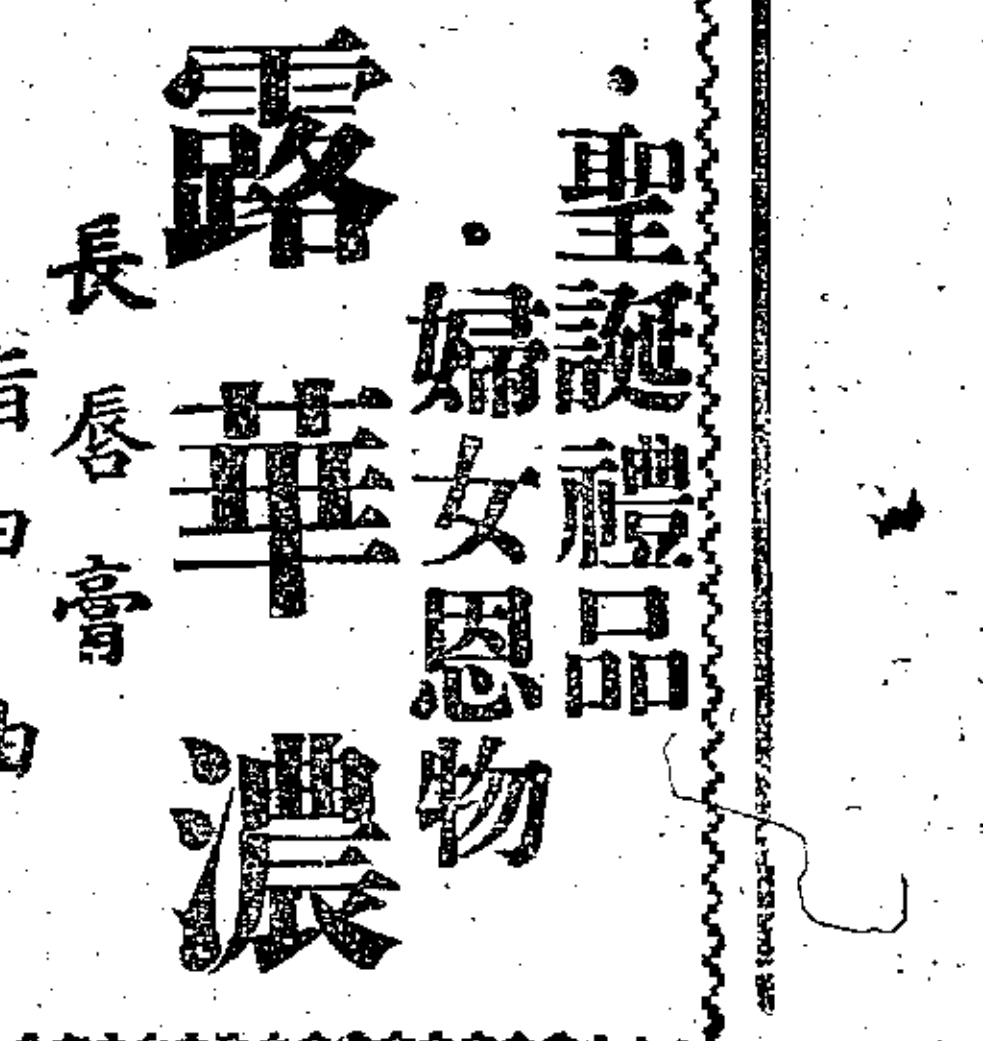 聖誕禮品
婦女恩物
露華濃
長唇膏